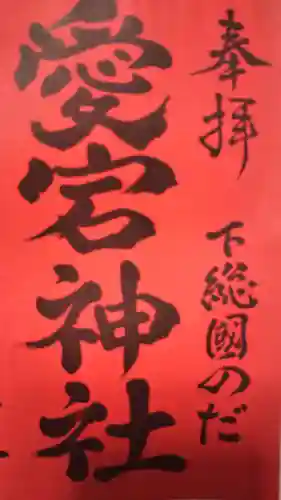 奉拝 下総國のだ
愛宕神社